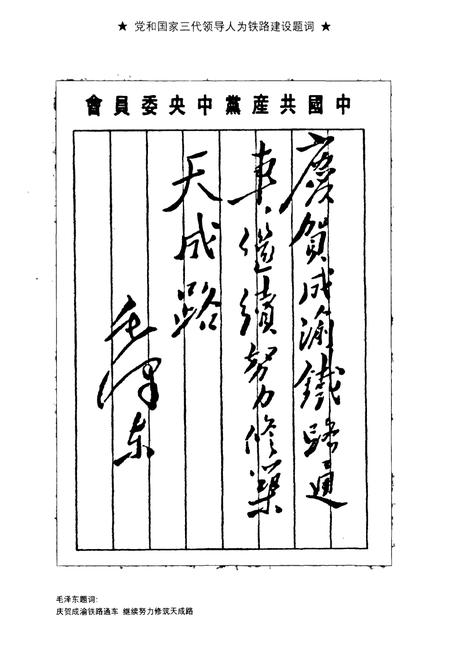 ★ 党和国家三代领导人为铁路建设题词 ★
會員委央中黨產共國中
慶賀成渝鐵路通
車、繼續努力修築
天成路
毛澤东
毛泽东题词:
庆贺成渝铁路通车 继续努力修筑天成路